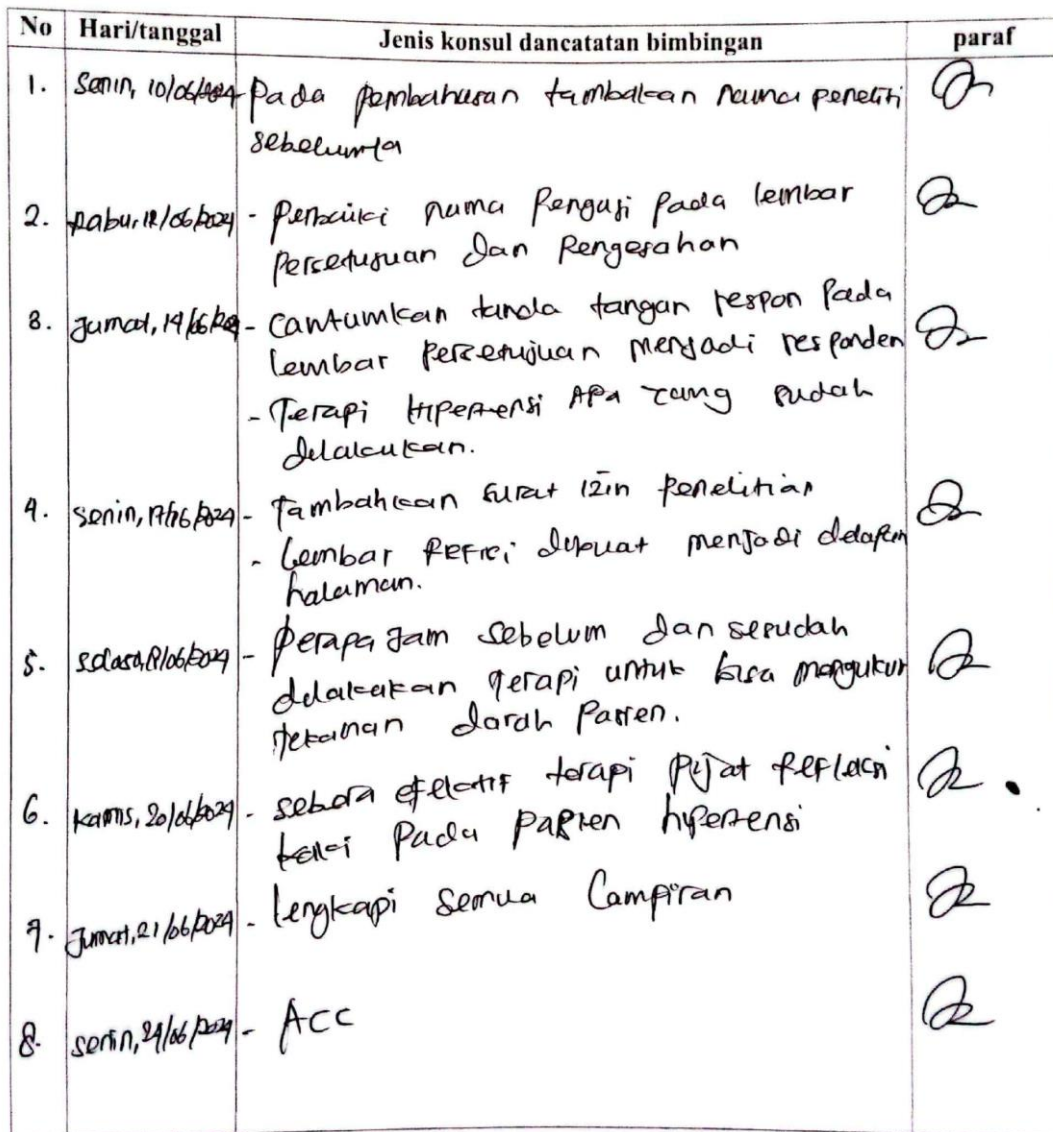 No Hari/tanggal Jenis konsul dancatatan bimbingan paraf
1. Senin, 10/06/2024 Pada pembahasan tambahkan nama peneliti
sebelumnya
2. Rabu, 12/06/2024 - Perbaiki nama Penguji pada lembar
Persetujuan dan Pengesahan
3. Jumat, 14/06/2024 - Cantumkan tanda tangan respon Pada
lembar Persetujuan menjadi responden
- Terapi Hipertensi Apa yang sudah
dilakukan.
4. Senin, 17/06/2024 - Tambahkan surat izin penelitian
- Lembar dibuat menjadi delapan
halaman.
5. Selasa, 18/06/2024 - Berapa jam sebelum dan sesudah
dilakukan terapi untuk bisa mengukur
tekanan darah Pasien.
6. Kamis, 20/06/2024 - efektif terapi Pijat Refleksi
kaki Pada pasien hipertensi
7. Jumat, 21/06/2024 - lengkapi semua Lampiran
8. Senin, 24/06/2024 - ACC